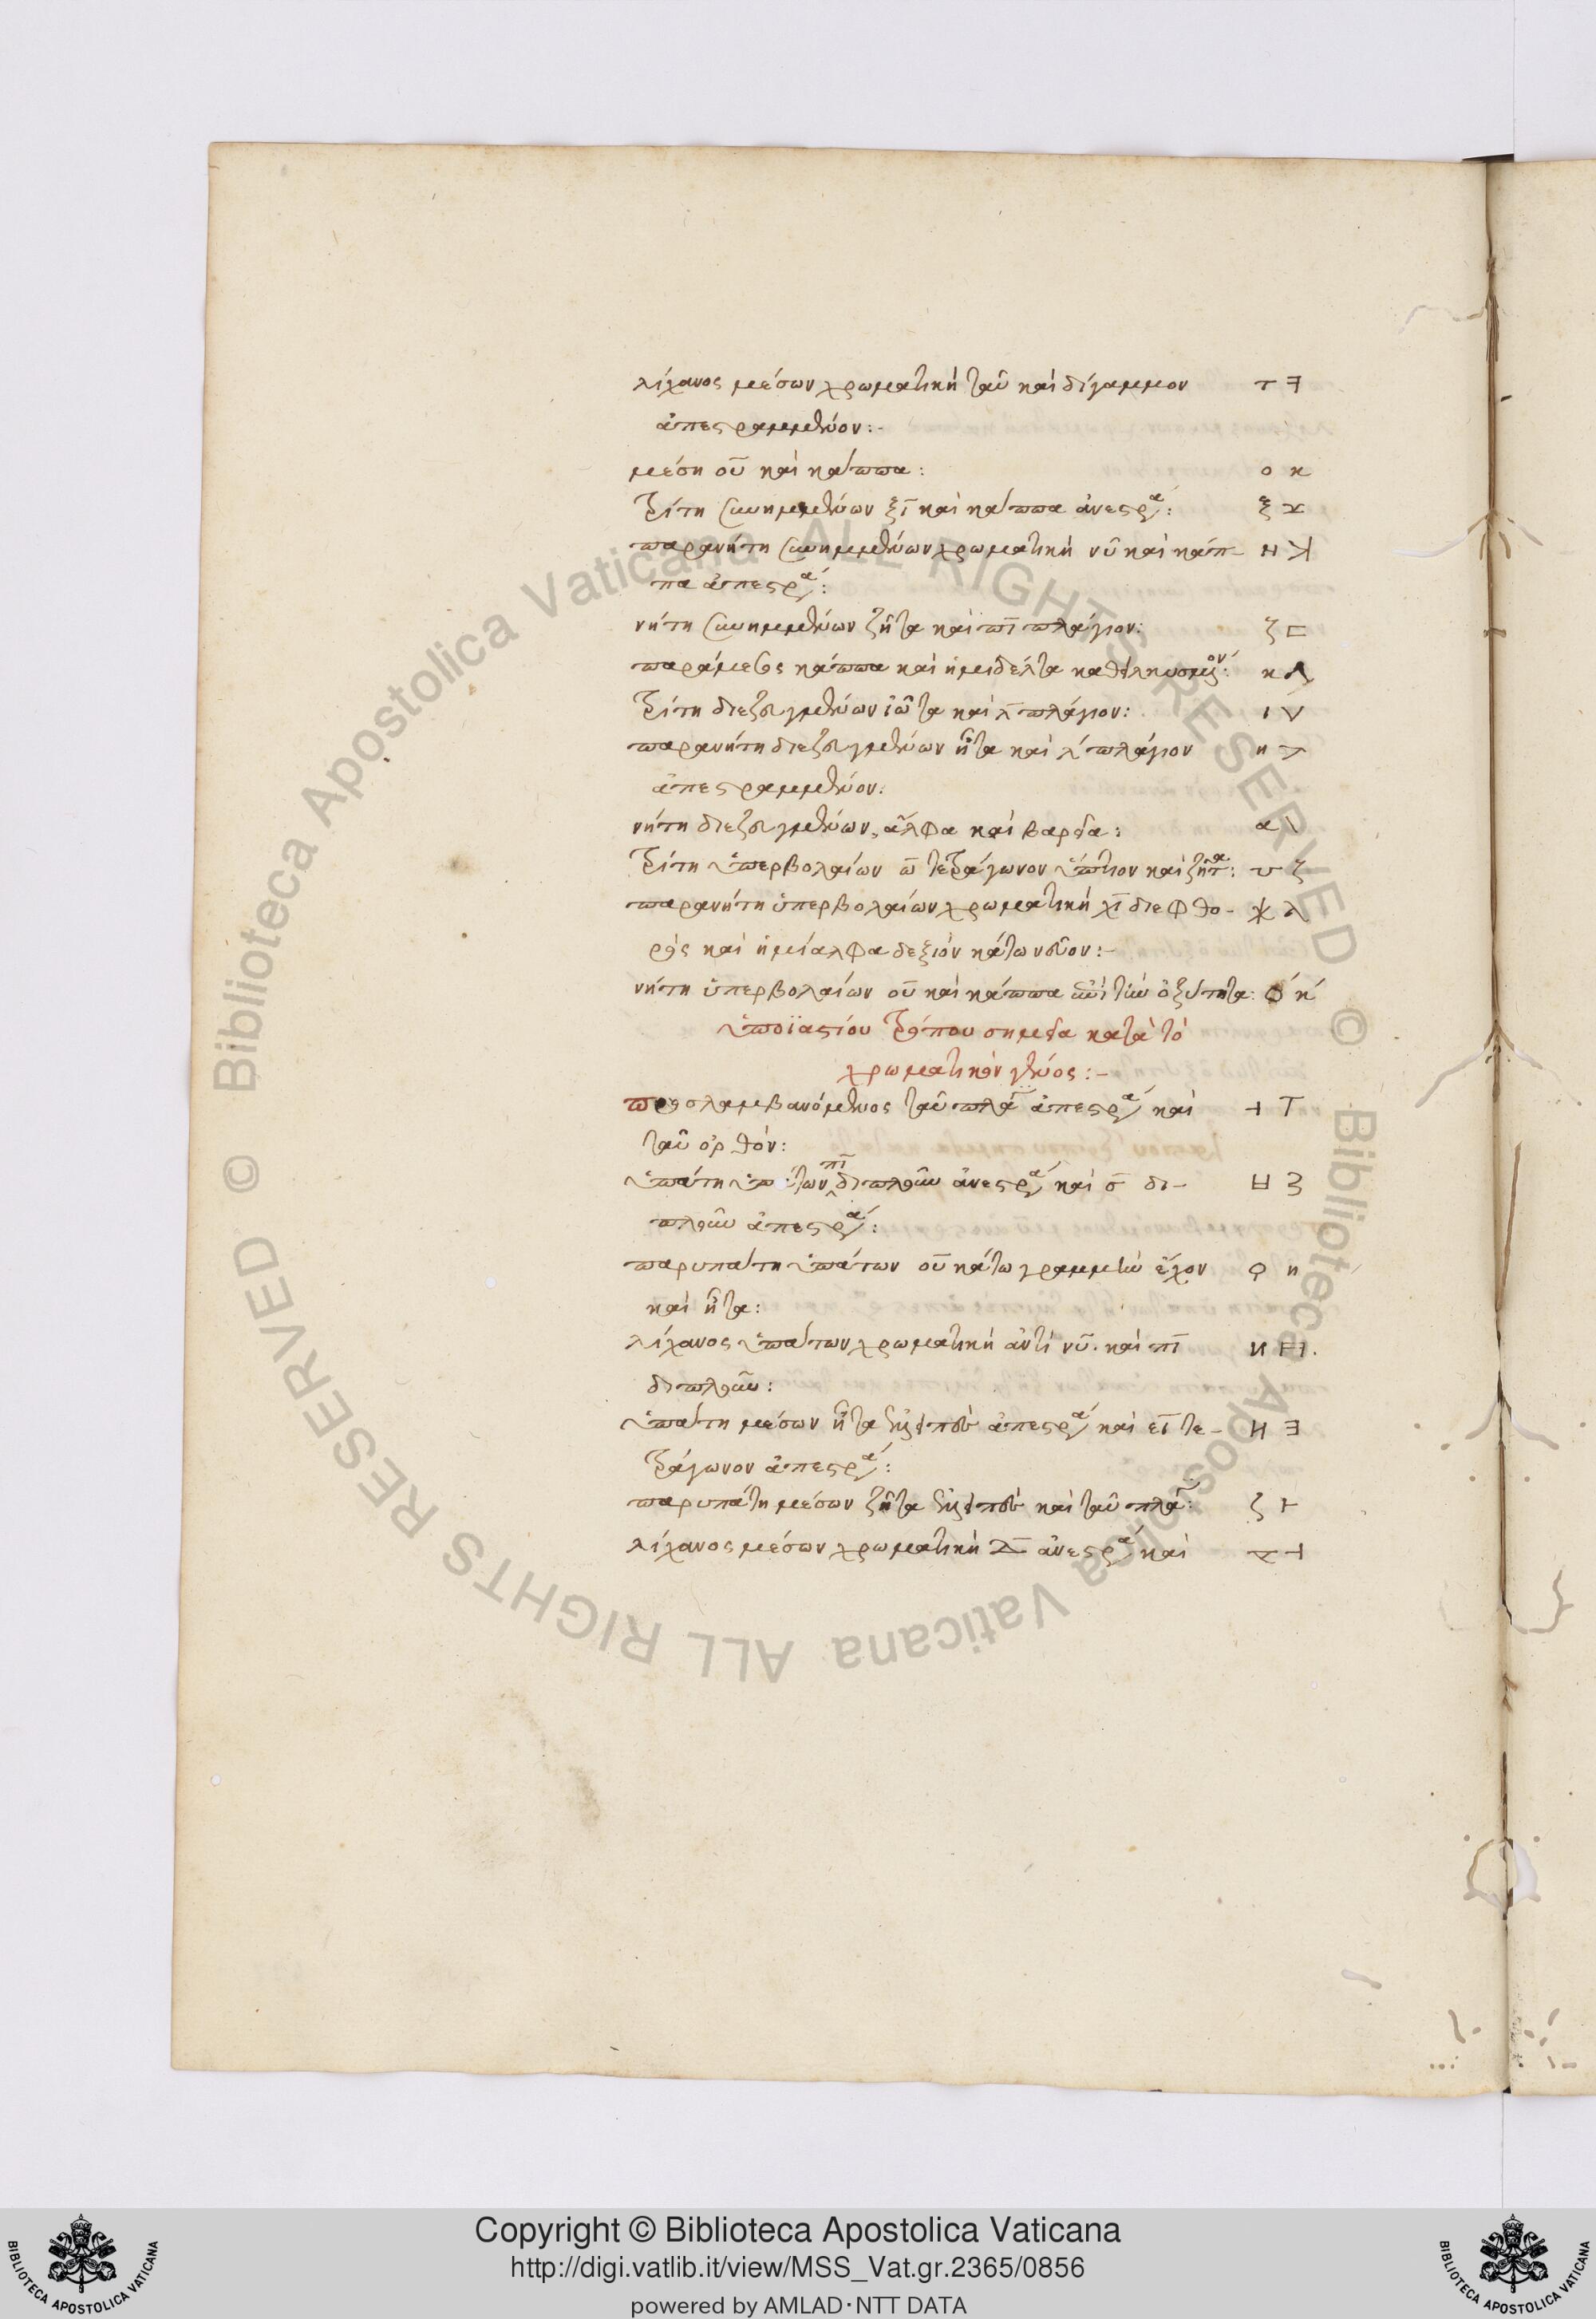 λίχανος μέσων χρωματικὴ ταῦ καὶ δίγαμμον Τ Ⅎ
ἀπεστραμμένον:-
μέση οὖ καὶ κάππα: Ο Κ
Τρίτη συνημμένων ξῖ καὶ κάππα ἀνεστρα: Ξ
παρανήτη συνημμένων χρωματικὴ νῦ καὶ κάπ-
πα ἀπεστρα:
νήτη συνημμένων ζῆτα καὶ πῖ πλάγιον: ζ ⊏
παράμεσος κάππα καὶ ἡμιδέλτα
Τρίτη διεζευγμένων ἰῶτα καὶ λ πλάγιον: Ι
παρανήτη διεζευγμένων ἦτα καὶ λ πλάγιον
ἀπεστραμμένον:
νήτη διεζευγμένων, ἄλφα καὶ βαρεῖα: α \
Τρίτη ὑπερβολαίων ω τετράγωνον ὕπτιον καὶ ζῆτα: ζ
παρανήτη ὑπερβολαίων χρωματικὴ χῖ διεφθο-
ρὸς καὶ ἡμίαλφα δεξιὸν κάτω νεῦον:-
νήτη ὑπερβολαίων οὖ καὶ κάππα ἐπὶ τὴν ὀξύτητα: Ό Κ́
ὑποϊαστίου τρόπου σημεῖα κατὰ τὸ
χρωματικὸν γένος:-
προσλαμβανόμενος ταῦ πλα ἀπεστρα καὶ ⊣ Τ
ταῦ ὀρθόν:
ὑπάτη ὑπάτων πῖ διπλοῦν ἀνεστρα καὶ σ δι-
πλοῦν ἀπεστρα:
παρυπάτη ὑπάτων οὖ κάτω γραμμὴν ἔχον
καὶ ἦτα:
λίχανος ὑπάτων χρωματικὴ ἀντὶ νῦ. καὶ πῖ И
διπλοῦν:
ὑπάτη μέσων ἦτα ἐλλειπὲς ἀπεστρα καὶ εῖ τε- Ǝ
τράγωνον ἀπεστρα:
παρυπάτη μέσων ζῆτα ἐλλειπὲς καὶ ταῦ πλα: ⊢
λίχανος μέσων χρωματικὴ ἀνεστρα καὶ ⊣
Copyright © Biblioteca Apostolica Vaticana
http://digi.vatlib.it/view/MSS_Vat.gr.2365/0856
powered by AMLAD·NTT DATA
BIBLIOTECA APOSTOLICA VATICANA
BIBLIOTECA APOSTOLICA VATICANA
© Biblioteca Apostolica Vaticana ALL RIGHTS RESERVED
© Biblioteca Apostolica Vaticana ALL RIGHTS RESERVED